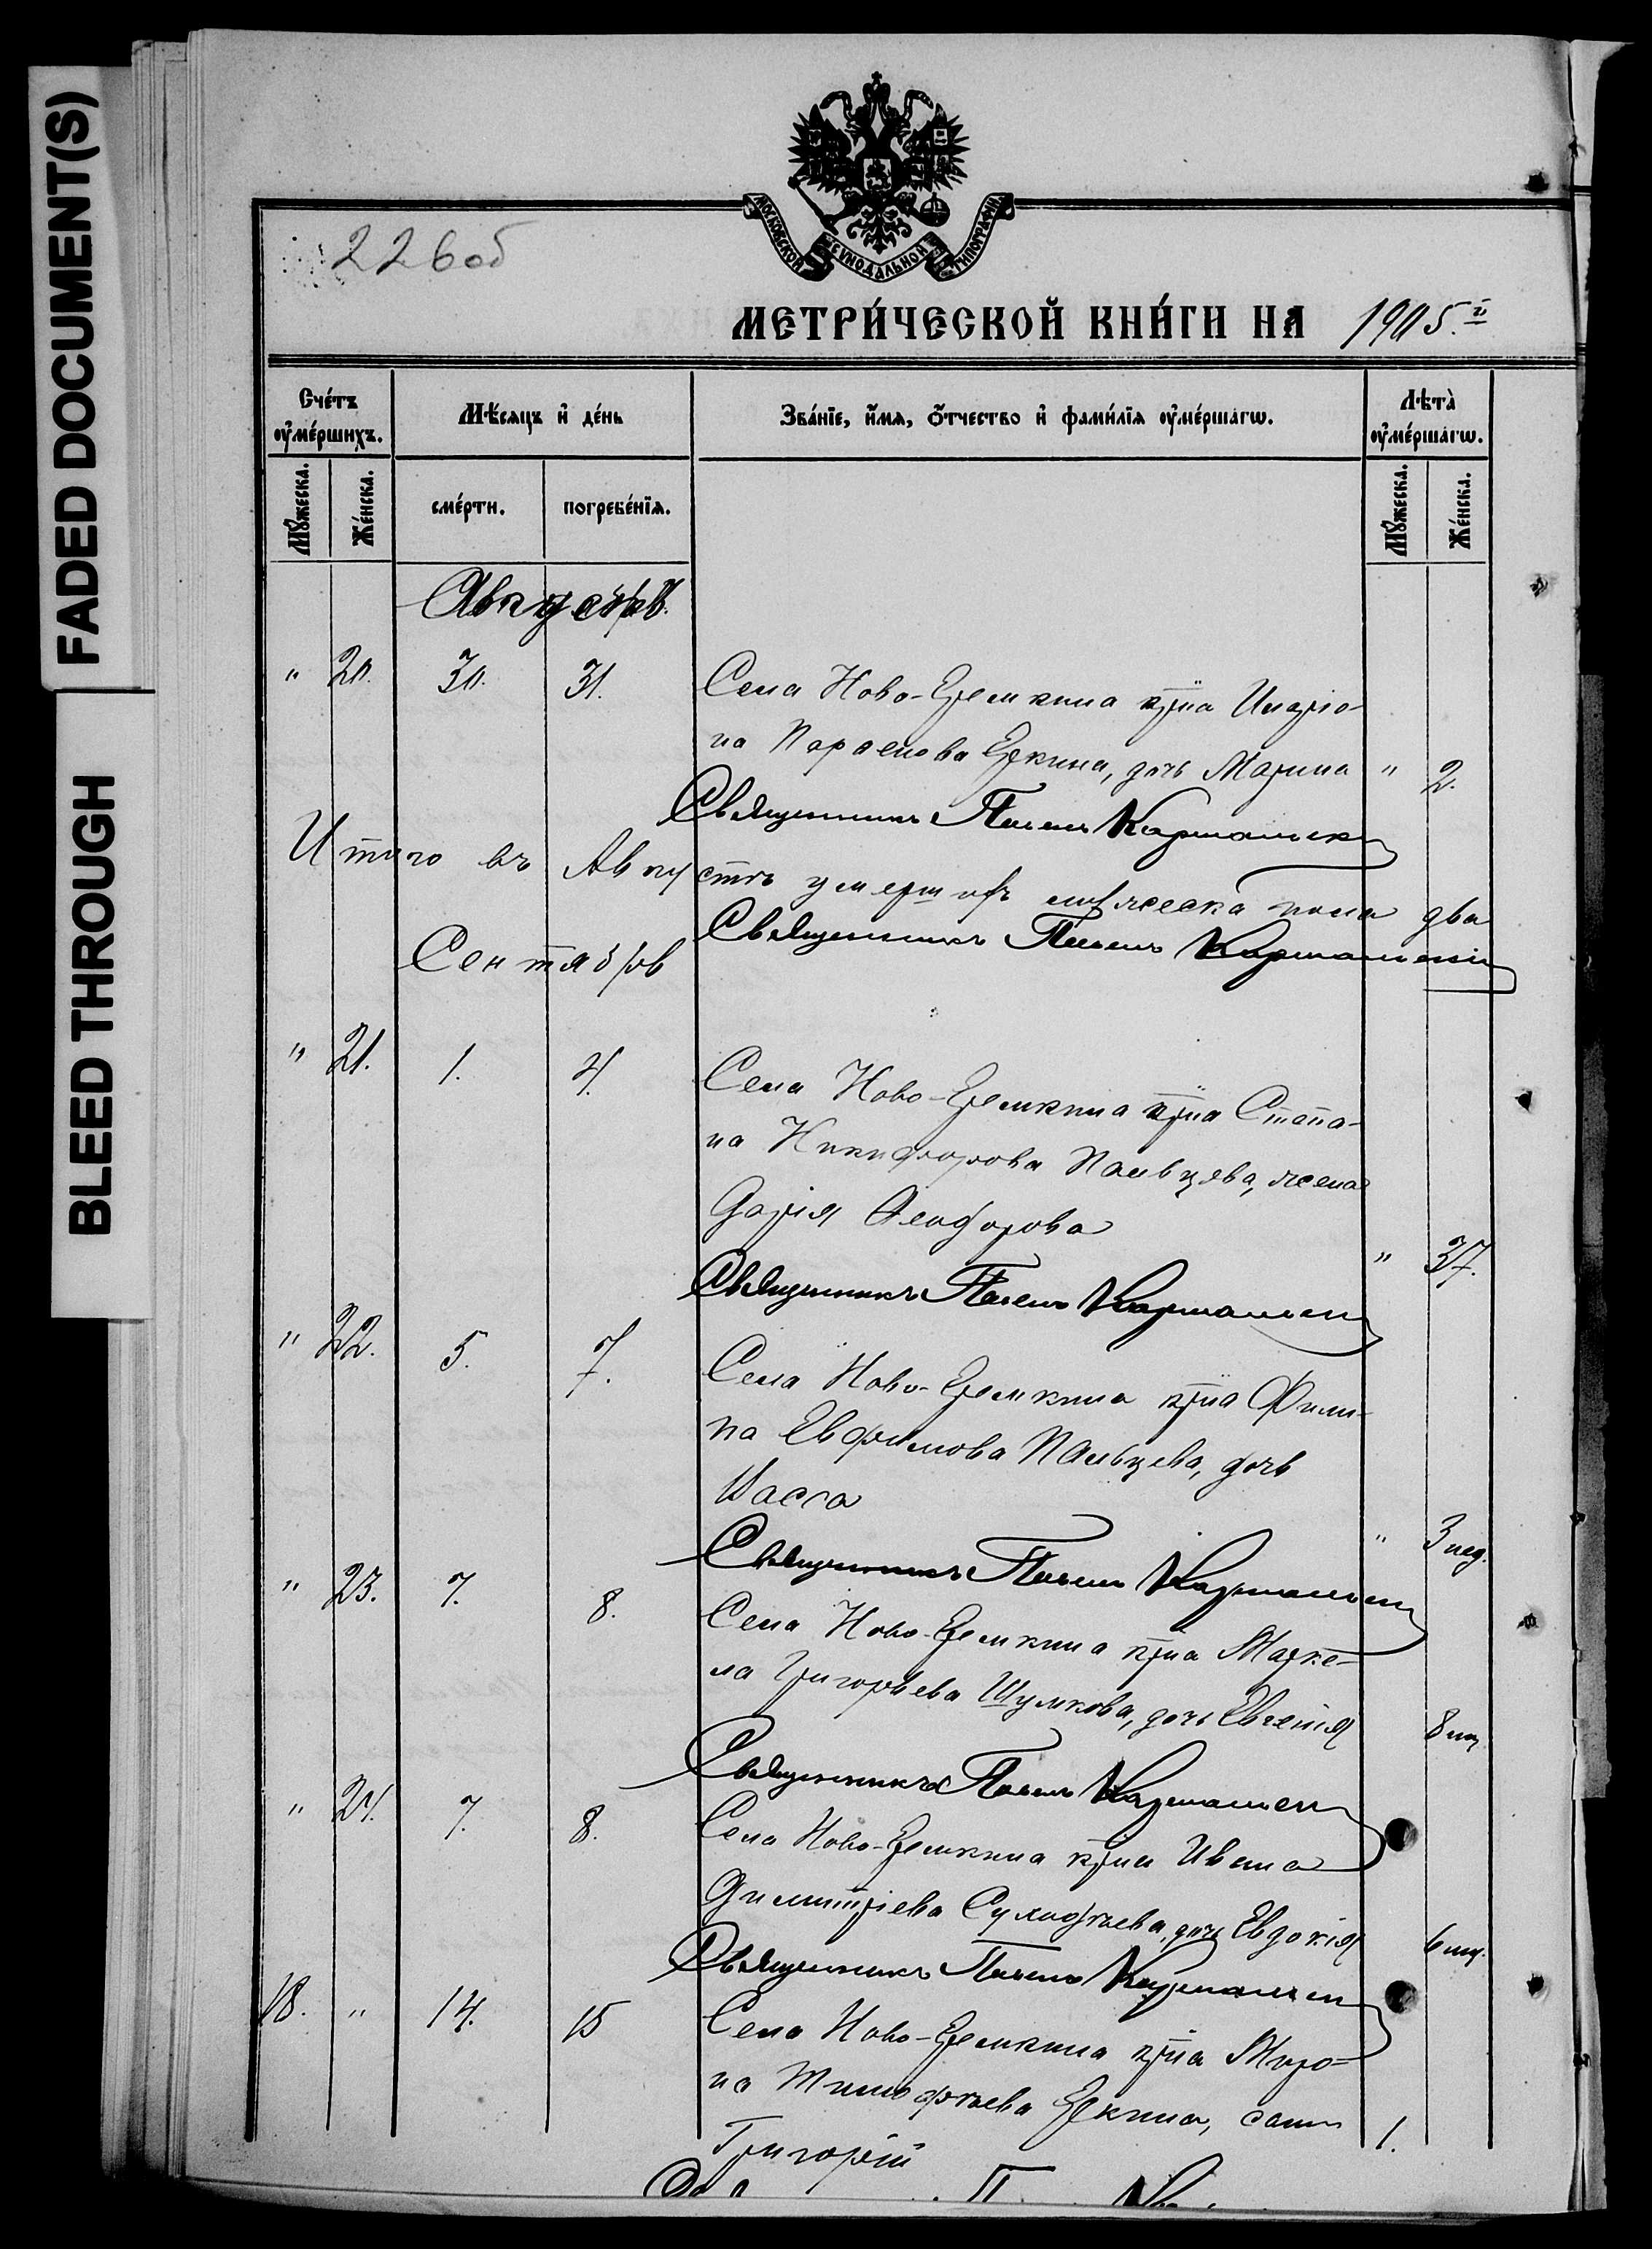 FADED DOCUMENT(S)
BLEED THROUGH
226 об
МОСКОВСКОЙ СѴНОДАЛЬНОЙ ТИПОГРАФІИ
МЕТРИ́ЧЕСКОЙ КНИ́ГИ НА 1905.й
Сче́тъ оу҆ме́ршихъ.
Мѣ́сяцъ и҆ де́нь
Зва́нїе, и҆́мя, ѻ҆́тчество и҆ фами́лїя оу҆ме́ршагѡ.
Лѣта̀ оу҆ме́ршагѡ.
Мꙋжеска.
Же́нска.
сме́рти.
погребе́нїя.
Мꙋжеска.
Же́нска.
Августъ.
" 20. 30. 31. Села Ново-Еремкина кр̃на Иларіо-
на Еркина, дочь Марина " 2.
Священникъ Павелъ
Итого въ Августѣ умершихъ пола два
Священникъ Павелъ
Сентябрь
" 21. 1. 4. Села Ново-Еремкина кр̃на Стефа-
на Никифорова Пальцева, жена
Дарія Ѳеодорова " 37.
Священникъ Павелъ
" 22. 5. 7. Села Ново-Еремкина кр̃на Фили-
па Евфимова Пальцева, дочь
Васса " 3 нед.
Священникъ Павелъ
" 23. 7. 8. Села Ново-Еремкина кр̃на Марке-
ла Григорьева Шумкова, дочь Евгенія 8 мц
Священникъ Павелъ
" 24. 7. 8. Села Ново-Еремкина кр̃на Ивана
Димитріева дочь Евдокія 6 мц.
Священникъ Павелъ
18. " 14. 15 Села Ново-Еремкина кр̃на Миро-
на Тимофѣева Еркина, сынъ
Григорій 1.